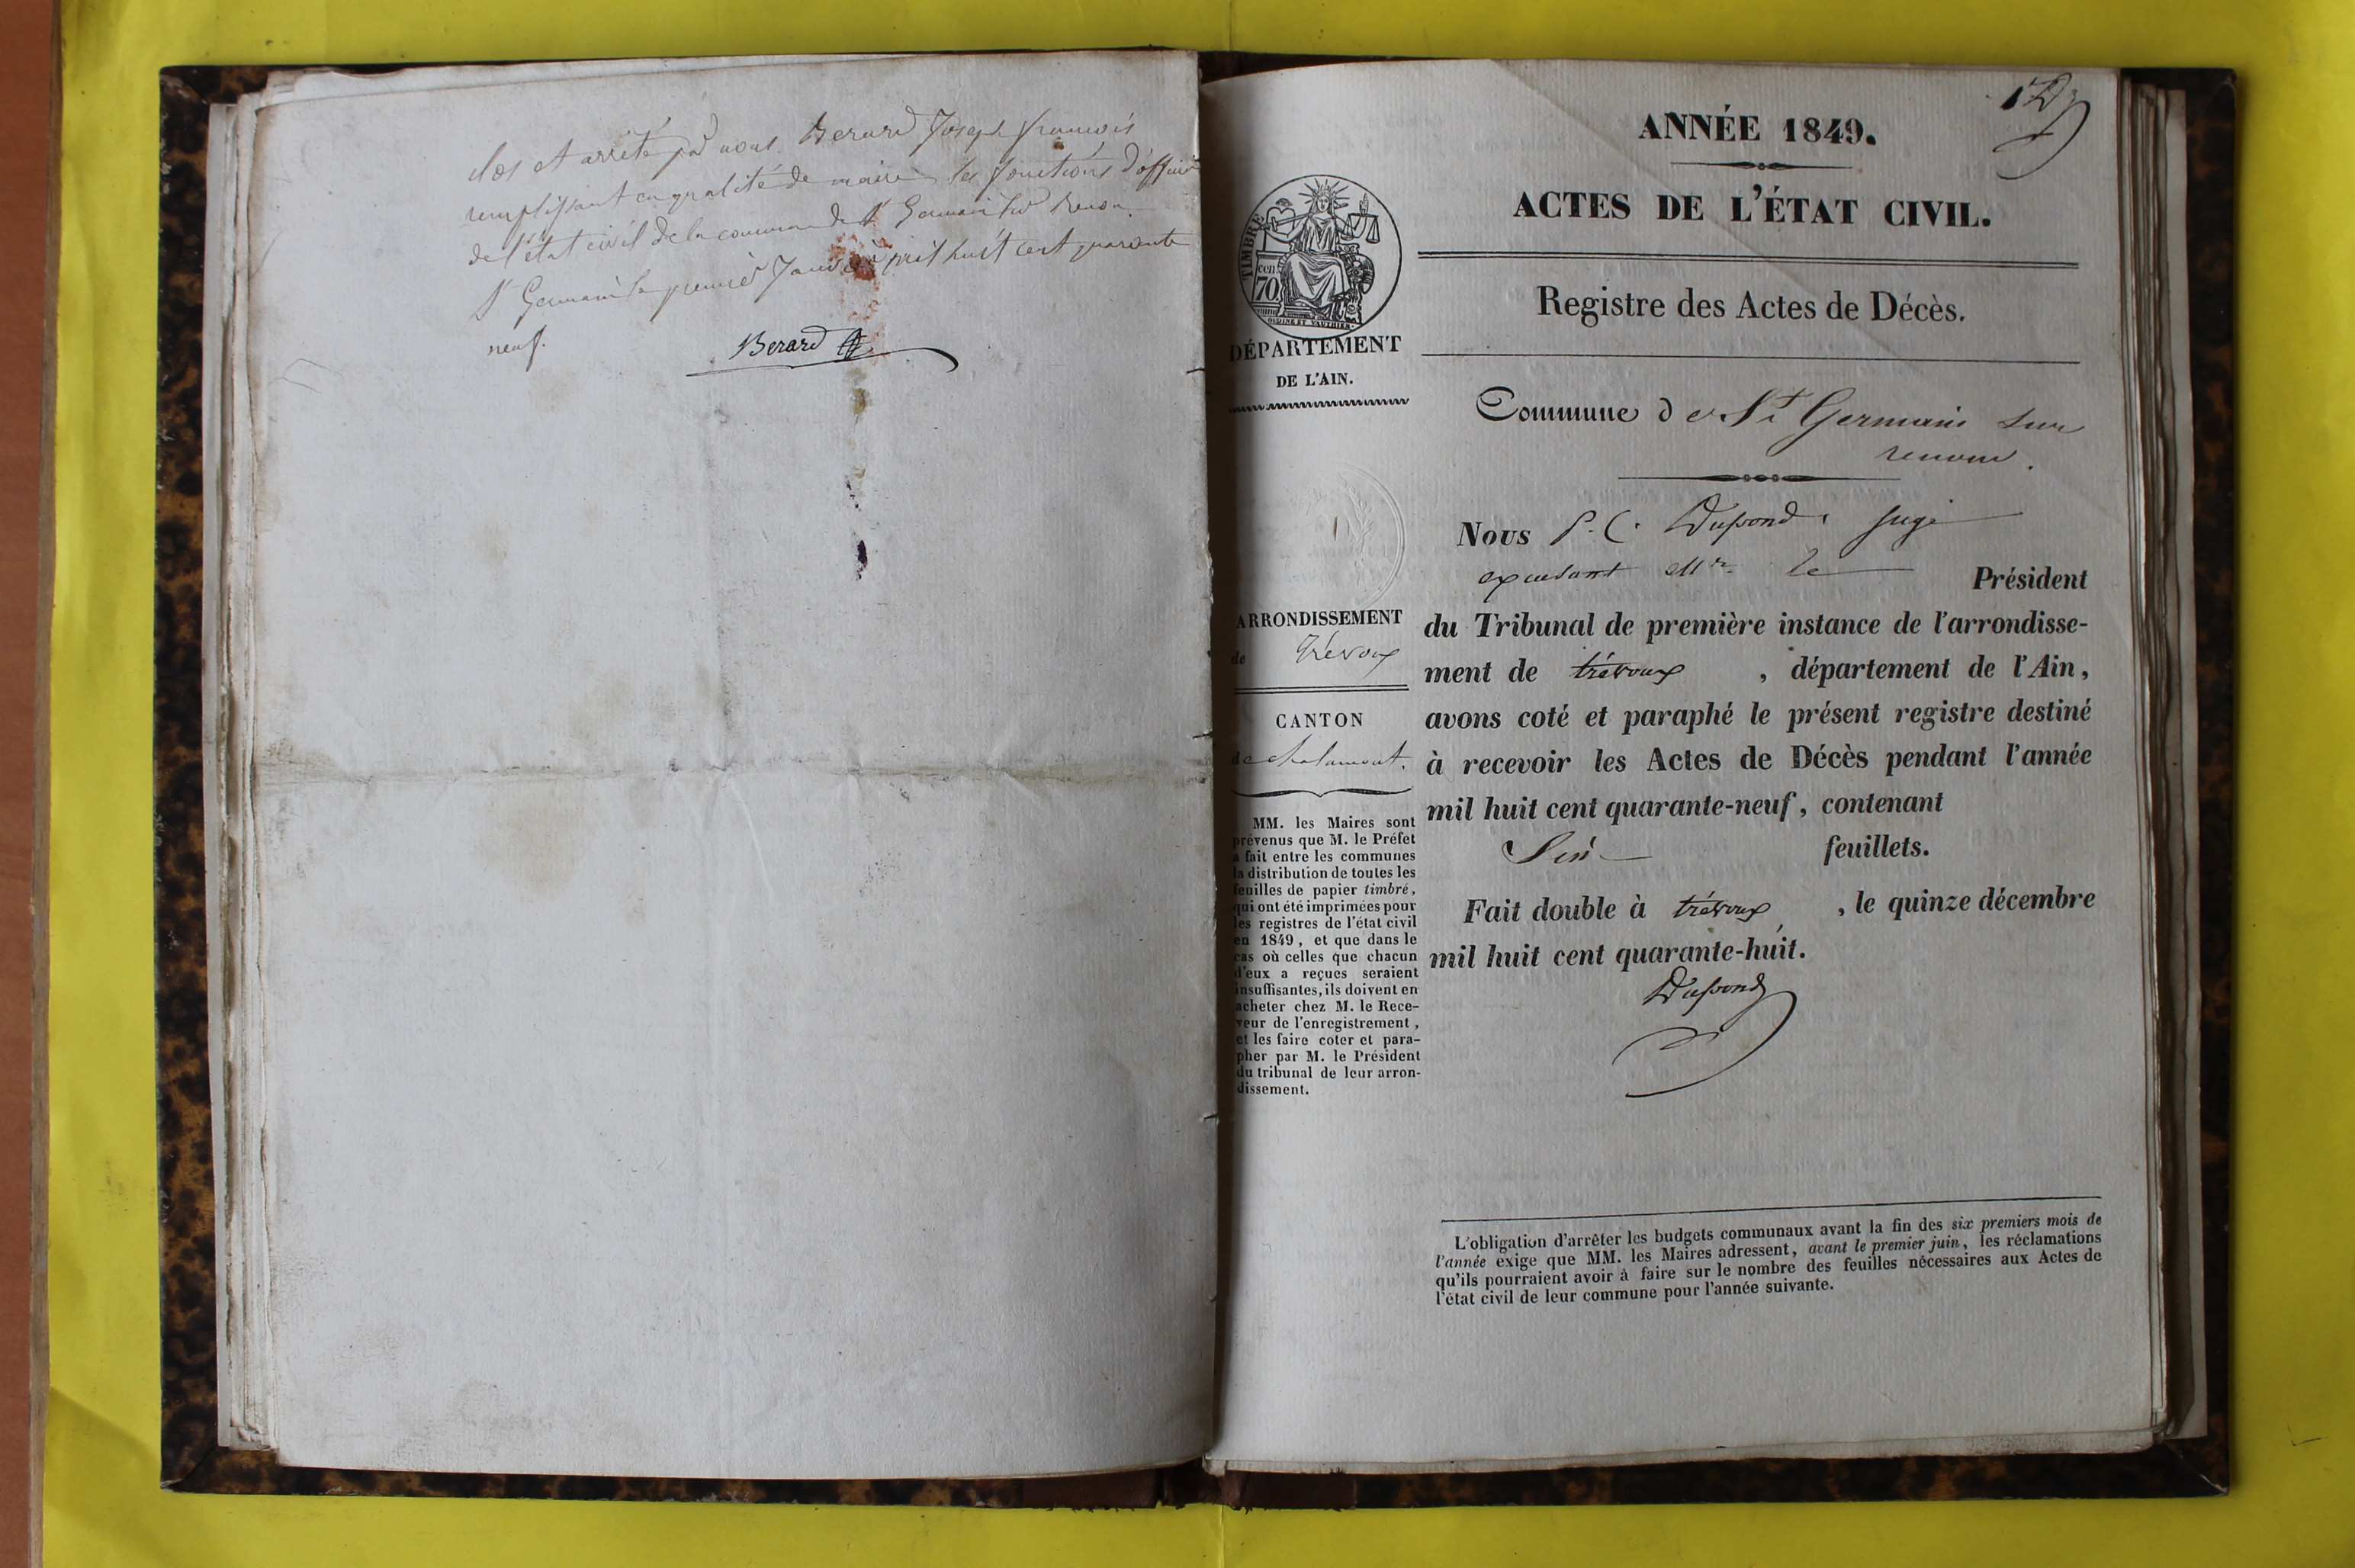 clos et arrêté par nous Berard Joseph françois
remplissant en qualité de maire les fonctions d'officier
de l'état civil de la commune de St Germain sur Renon.
St Germain le premier Janvier mil huit cent quarante
neuf.
Berard
1
ANNÉE 1849.
ACTES DE L'ÉTAT CIVIL.
Registre des Actes de Décès.
TIMBRE
cen.
70
DÉPARTEMENT
DE L'AIN.
Commune de St Germain sur
renom.
Nous P. C. Dupond, juge
Mr. le Président
ARRONDISSEMENT
de Trévoux
du Tribunal de première instance de l'arrondisse-
ment de trévoux, département de l'Ain,
CANTON
de chalamont.
avons coté et paraphé le présent registre destiné
à recevoir les Actes de Décès pendant l'année
mil huit cent quarante-neuf, contenant
Six feuillets.
Fait double à trévoux, le quinze décembre
mil huit cent quarante-huit.
Dupond
MM. les Maires sont
prévenus que M. le Préfet
a fait entre les communes
la distribution de toutes les
feuilles de papier timbré,
qui ont été imprimées pour
les registres de l'état civil
en 1849, et que dans le
cas où celles que chacun
d'eux a reçues seraient
insuffisantes, ils doivent en
acheter chez M. le Rece-
veur de l'enregistrement,
et les faire coter et para-
pher par M. le Président
du tribunal de leur arron-
dissement.
L'obligation d'arrêter les budgets communaux avant la fin des six premiers mois de
l'année exige que MM. les Maires adressent, avant le premier juin, les réclamations
qu'ils pourraient avoir à faire sur le nombre des feuilles nécessaires aux Actes de
l'état civil de leur commune pour l'année suivante.